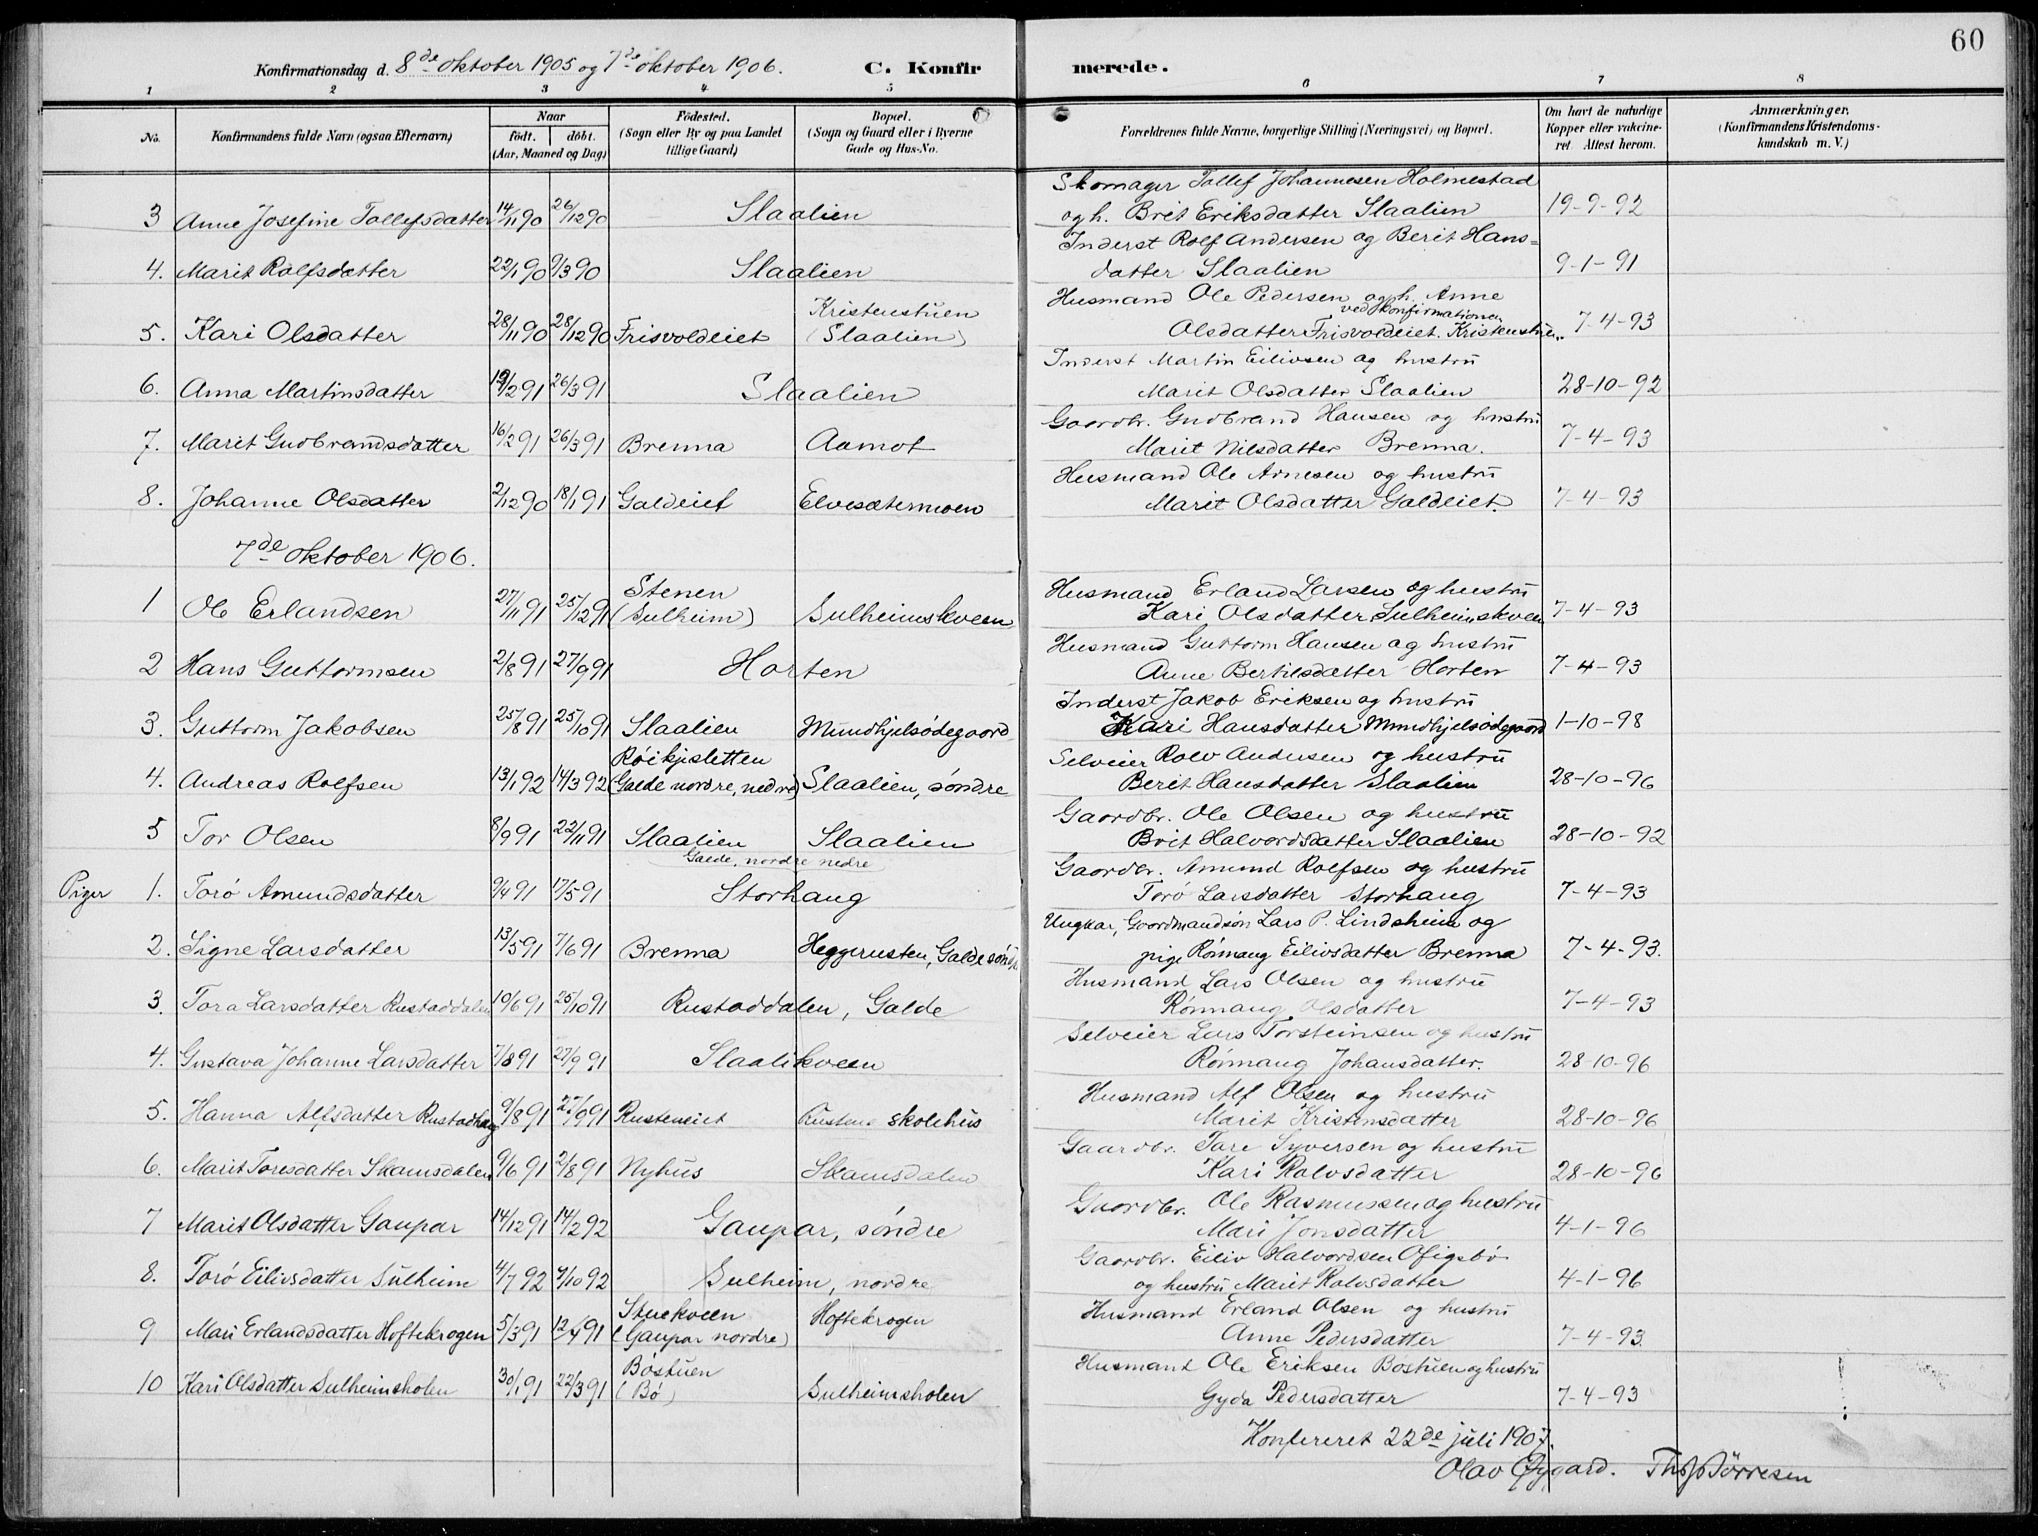 60
Konfirmationsdag d. 8de oktober 1905 og 7de oktober 1906.
C. Konfirmerede.
1 2 3 4 5 6 7 8
No.
Konfirmandens fulde Navn (ogsaa Efternavn)
Naar
født. døbt.
(Aar, Maaned og Dag)
Fødested.
(Sogn eller By og paa Landet
tillige Gaard)
Bopæl.
(Sogn og Gaard eller i Byerne
Gade og Hus-No.
Forældrenes fulde Navne, borgerlige Stilling (Næringsvei) og Bopæl.
Om havt de naturlige
Kopper eller vakcine-
ret. Attest herom.
Anmærkninger.
(Konfirmandens Kristendoms-
kundskab m. V.)
Skomager Tollef Johannesen Holmestad
3 Anne Josefine Tollefsdatter 14/11 90 26/12 90 Slaalien og h. Brit Eriksdatter Slaalien 19-9-92
Inderst Rolf Andersen og Berit Hans=
4. Marit Rolfsdatter 22/1 90 9/3 90 Slaalien datter Slaalien 9-1-91
Kristenstuen Husmand Ole Pedersen og h. Anne
ved konfirmationen
5. Kari Olsdatter 28/11 90 28/12 90 Frisvoldeiet (Slaalien) Olsdatter Frisvoldeiet. Kristenstuen. 7-4-93
Inderst Martin Eilivsen og hustru
6. Anna Martinsdatter 19/2 91 26/3 91 Slaalien Marit Olsdatter Slaalien 28-10-92
Gaardbr. Gudbrand Hansen og hustru
7. Marit Gudbrandsdatter 16/2 91 26/3 91 Brenna Aamot Marit Nilsdatter Brenna. 7-4-93
Husmand Ole Arnesen og hustru
8. Johanne Olsdatter 2/12 90 18/1 91 Galdeiet Elvesætermoen Marit Olsdatter Galdeiet. 7-4-93
7de oktober 1906.
Stenen Husmand Erland Larsen og hustru
1 Ole Erlandsen 27/11 91 25/12 91 (Sulheim) Sulheimskveen Kari Olsdatter Sulheimskveen 7-4-93
Husmand Guttorm Hansen og hustru
2 Hans Guttormsen 2/8 91 27/9 91 Horten Anne Bertilsdatter Horten 7-4-93
Inderst Jakob Eriksen og hustru
3. Guttorm Jakobsen 25/8 91 25/10 91 Slaalien Mundhjelsødegaard Kari Hansdatter Mundhjelsødegaard 1-10-98
Røikjisletten Selveier Rolv Andersen og hustru
4. Andreas Rolfsen 13/1 92 14/3 92 (Galde nordre, nedre) Slaalien, søndre Berit Hansdatter Slaalien 28-10-96
Gaardbr. Ole Olsen og hustru
5 Tor Olsen 8/9 91 22/11 91 Slaalien Slaalien Brit Halvordsdatter Slaalien 28-10-92
Galde, nordre nedre Gaardbr. Amund Rolfsen og hustru
Piger 1. Torø Amundsdatter 9/4 91 17/5 91 Storhaug Torø Larsdatter Storhaug 7-4-93
Ungkar, Gaardmandsøn Lars P. Lindsheim og
2. Signe Larsdatter 13/5 91 7/6 91 Brenna Heggerusten, Galde søndre pige Rønnaug Eilivsdatter Brenna 7-4-93.
Husmand Lars Olsen og hustru
3. Tora Larsdatter Rustaddalen 10/6 91 25/10 91 Rustaddalen, Galde Rønnaug Olsdatter 7-4-93
Selveier Lars Torsteinsen og hustru
4. Gustava Johanne Larsdatter 7/8 91 27/9 91 Slaalikveen Rønnaug Johansdatter. 28-10-96
Husmand Alf Olsen og hustru
5. Hanna Alfsdatter Rustadhaug 9/8 91 27/9 91 Rusteneiet Rustens skolehus Marit Kristensdatter 28-10-96
Gaardbr. Tore Syversen og hustru
6. Marit Toresdatter Skamsdalen 9/6 91 2/8 91 Nyhus Skamsdalen Kari Rolvsdatter 28-10-96
Gaardbr. Ole Rasmussen og hustru
7 Marit Olsdatter Gaupar 14/12 91 14/2 92 Gaupar, søndre Mari Jonsdatter 4-1-96
Gaardbr. Eiliv Halvordsen Ofigsbø
8. Torø Eilivsdatter Sulheim 4/7 92 9/10 92 Sulheim, nordre og hustru Marit Rolvsdatter 4-1-96
Stuekveen Hoftekrogen Husmand Erland Olsen og hustru
9 Mari Erlandsdatter Hoftekrogen 5/3 91 12/4 91 (Gaupar nordre) Anne Pedersdatter 7-4-93.
Bøstuen Husmand Ole Eriksen Bostuen og hustru
10 Kari Olsdatter Sulheimsholen 30/1 91 22/3 91 (Bø) Sulheimsholen Gyda Pedersdatter 7-4-93
Konfereret 22de juli 1907.
Olav Øygard. Ths Tørresen